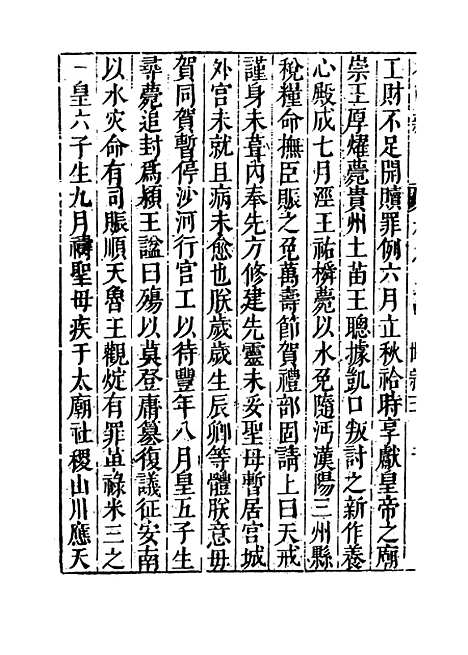 工財不足開贖罪例六月立秋祫時享獻皇帝之廟
崇王厚燿薨貴州土苗王聰據凱口叛討之新作養
心殿成七月涇王祐橓薨以水免隨沔漢陽三州縣
稅糧命撫臣賑之免萬壽節賀禮部固請上曰天戒
謹身未葺內奉先方修建先靈未妥聖母暫居宮城
外官未就且病未愈也朕歲歲生辰卿等體朕意毋
賀同賀暫停沙河行宮工以待豐年八月皇五子生
尋薨追封爲潁王諡曰殤以莫登庸篡復議征安南
以水灾命有司賑順天魯王觀𤊟有罪革祿米三之
一皇六子生九月禱聖母疾于太廟社稷山川應天